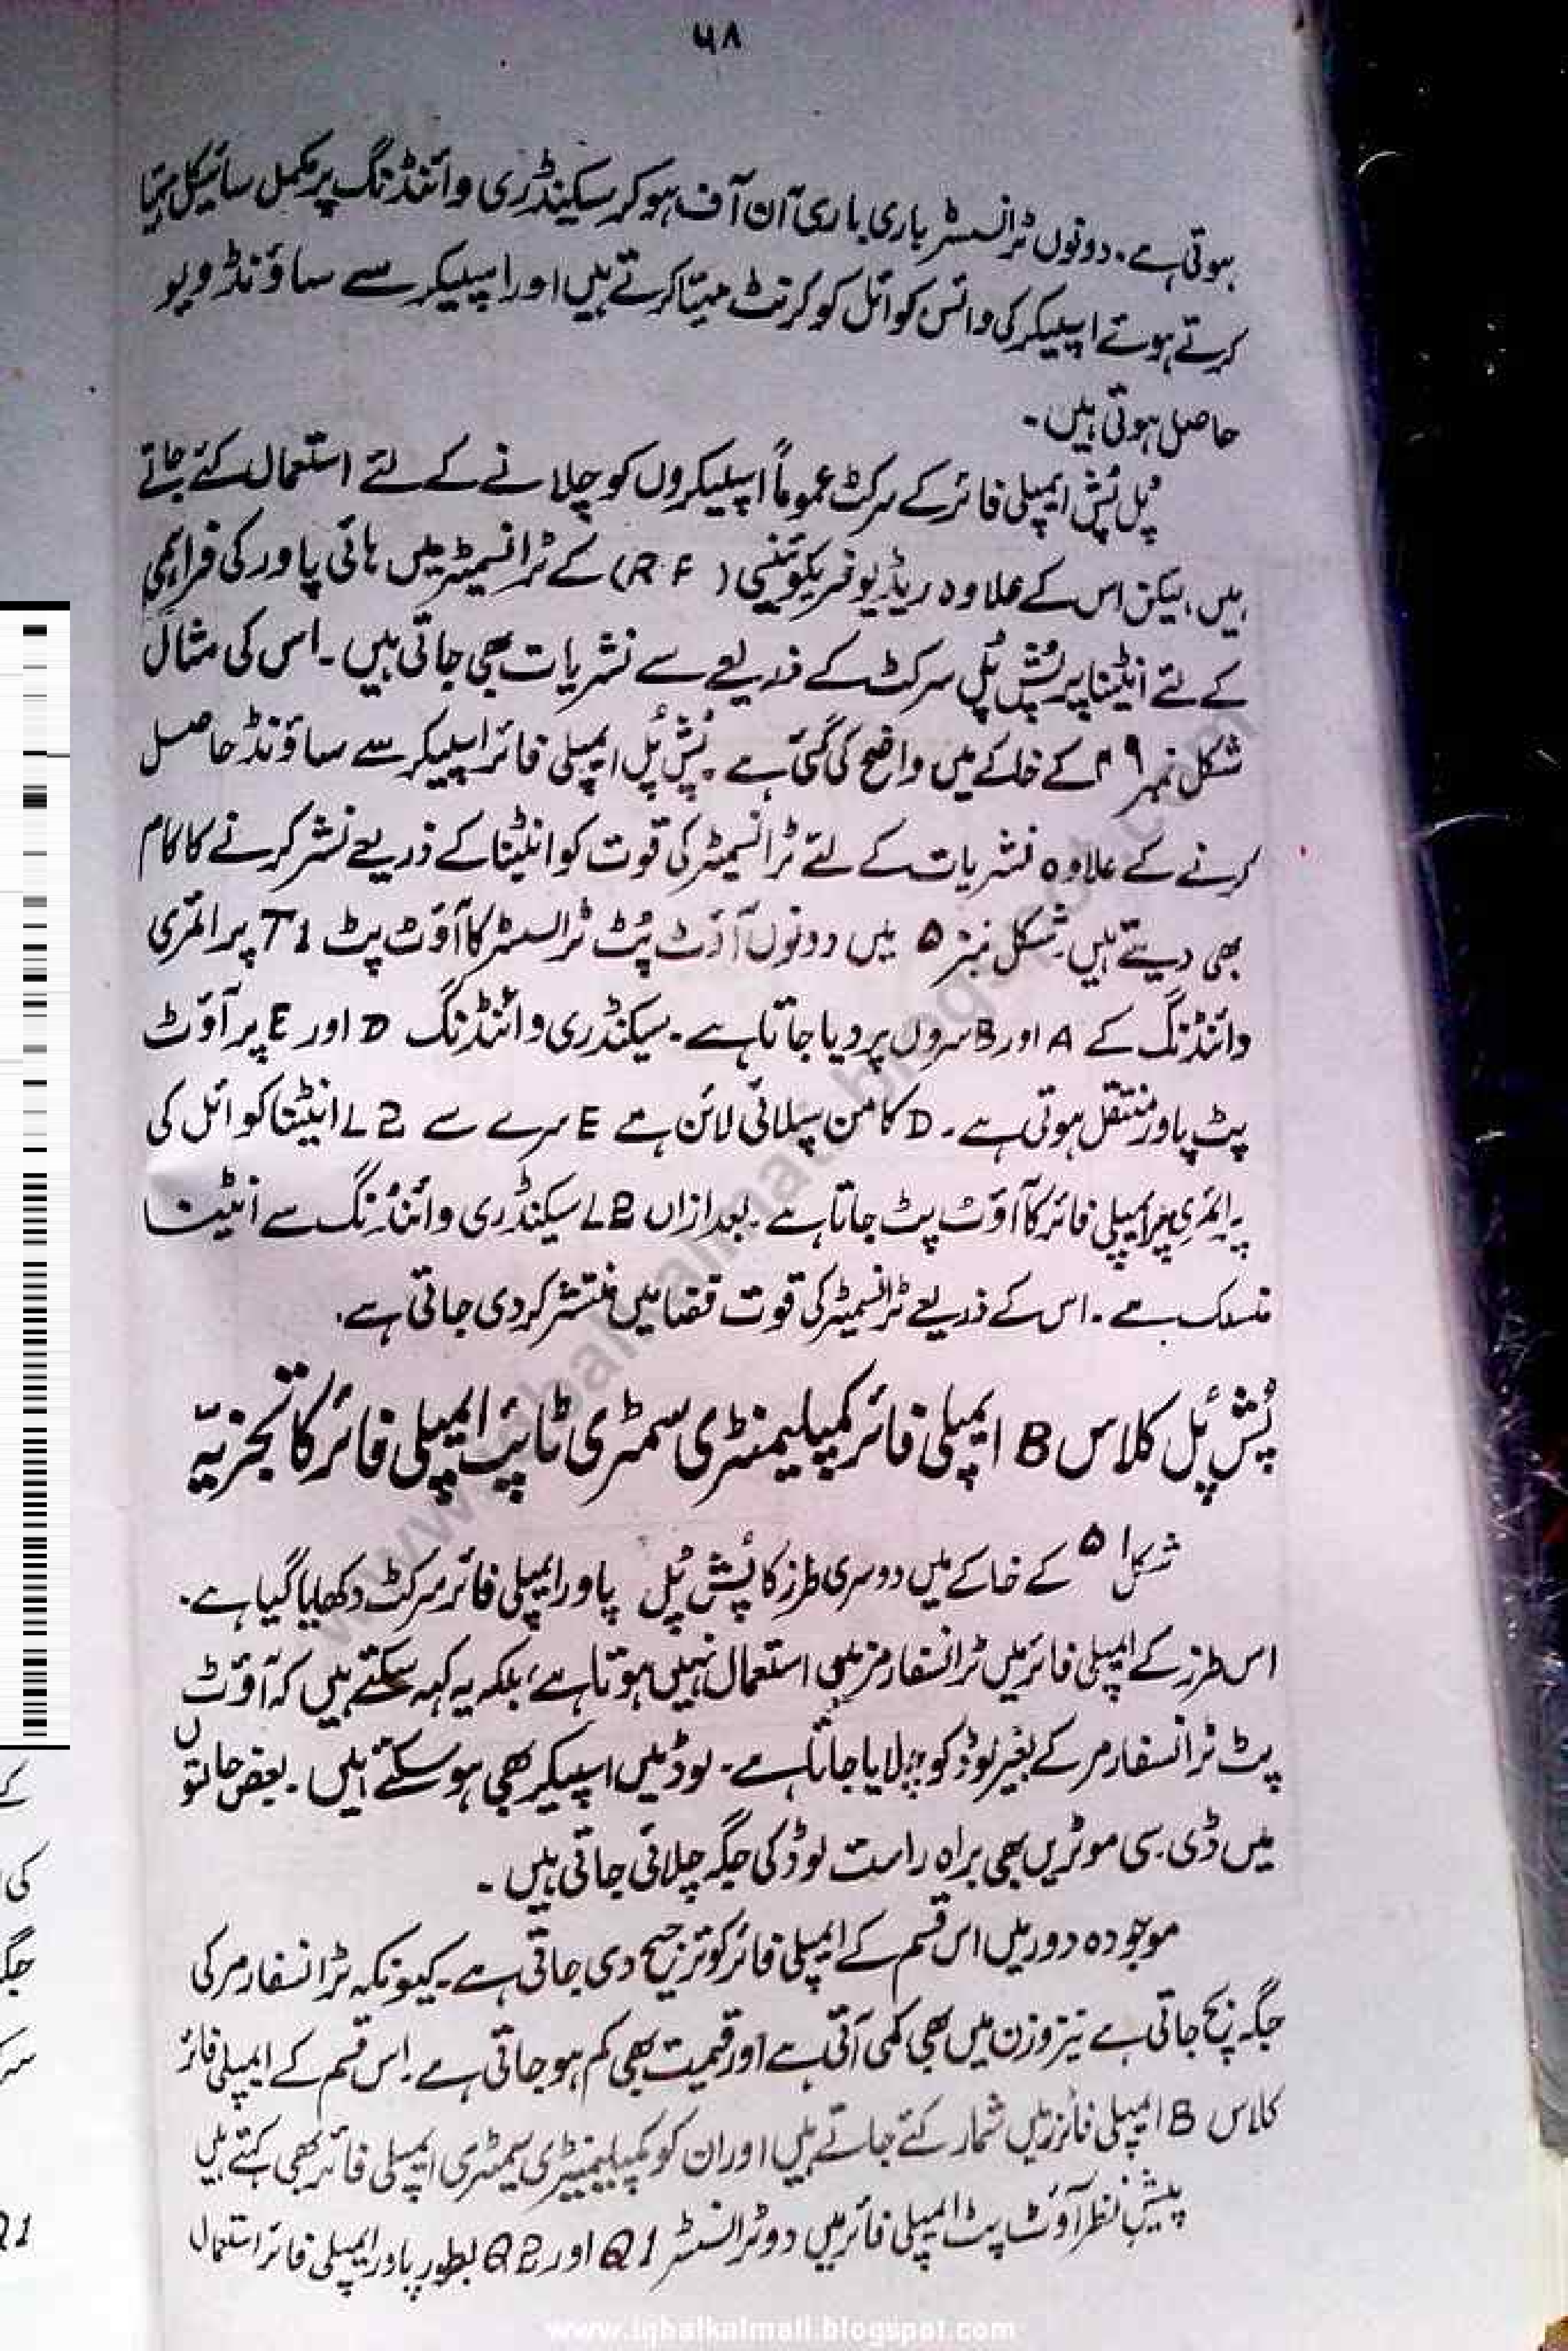 ۵۸
ہوتی ہے۔ دونوں ٹرانسسٹر باری باری آن آف ہو کر سیکنڈری وائنڈنگ پر مکمل سائیکل مہیا
کرتے ہوئے اسپیکر کی وائس کوائل کو کرنٹ مہیا کرتے ہیں اور اسپیکر سے ساؤنڈ ویو
حاصل ہوتی ہیں۔
پُل پُش ایمپلی فائر کے سرکٹ عموماً اسپیکروں کو چلانے کے لئے استعمال کئے جاتے
ہیں، لیکن اس کے علاوہ ریڈیو فریکوئنسی (RF) کے ٹرانسمیٹر میں ہائی پاور کی فراہمی
کے لئے انٹینا پر پُش پُل سرکٹ کے ذریعے سے نشریات بھی جاتی ہیں۔ اس کی مثال
شکل نمبر ۴۹ کے خاکے میں واضح کی گئی ہے۔ پُش پُل ایمپلی فائر اسپیکر سے ساؤنڈ حاصل
کرنے کے علاوہ نشریات کے لئے ٹرانسمیٹر کی قوت کو انٹینا کے ذریعے نشر کرنے کا کام
بھی دیتے ہیں۔ شکل نمبر ۵ میں دونوں آؤٹ پُٹ ٹرانسسٹر کا آؤٹ پٹ T1 پرائمری
وائنڈنگ کے A اور B سروں پر دیا جاتا ہے۔ سیکنڈری وائنڈنگ D اور E پر آؤٹ
پٹ پاور منتقل ہوتی ہے۔ D کامن سپلائی لائن ہے E سرے سے L2 انٹینا کوائل کی
پرائمری پر ایمپلی فائر کا آؤٹ پٹ جاتا ہے۔ بعد ازاں L2 سیکنڈری وائنڈنگ سے انٹینا
منسلک ہے۔ اس کے ذریعے ٹرانسمیٹر کی قوت فضا میں منتشر کر دی جاتی ہے۔
پُش پُل کلاس B ایمپلی فائر کمپلیمنٹری سمٹری ٹائپ ایمپلی فائر کا تجزیہ
شکل ۵۱ کے خاکے میں دوسری طرز کا پُش پُل پاور ایمپلی فائر سرکٹ دکھایا گیا ہے۔
اس طرز کے ایمپلی فائر میں ٹرانسفارمر استعمال نہیں ہوتا ہے، بلکہ یہ کہہ سکتے ہیں کہ آؤٹ
پٹ ٹرانسفارمر کے بغیر لوڈ کو چلایا جاتا ہے۔ لوڈ میں اسپیکر بھی ہو سکتے ہیں۔ بعض حالتوں
میں ڈی۔سی موٹریں بھی براہ راست لوڈ کی جگہ چلائی جاتی ہیں۔
موجودہ دور میں اس قسم کے ایمپلی فائر کو ترجیح دی جاتی ہے۔ کیونکہ ٹرانسفارمر کی
جگہ بچ جاتی ہے نیز وزن میں بھی کمی آتی ہے اور قیمت بھی کم ہو جاتی ہے۔ اس قسم کے ایمپلی فائر
کلاس B ایمپلی فائرز میں شمار کئے جاتے ہیں اور ان کو کمپلیمنٹری سیمٹری ایمپلی فائر بھی کہتے ہیں
پیشِ نظر آؤٹ پٹ ایمپلی فائر میں دو ٹرانسسٹر Q1 اور Q2 بطور پاور ایمپلی فائر استعمال
کے
کی
جگہ
Q1
www.iqbalkalmati.blogspot.com